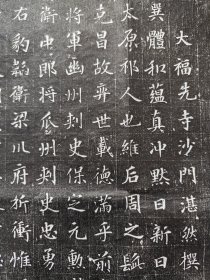 大福先寺沙門湛然撰
異體和蘊真沖默日新日
太原祁人也維后周之
克昌故弈世載德滿乎前
將軍幽州刺史保定元勳
衛中郎將瓜州刺史忠勇
右豹韜衛梁川府折衝惟